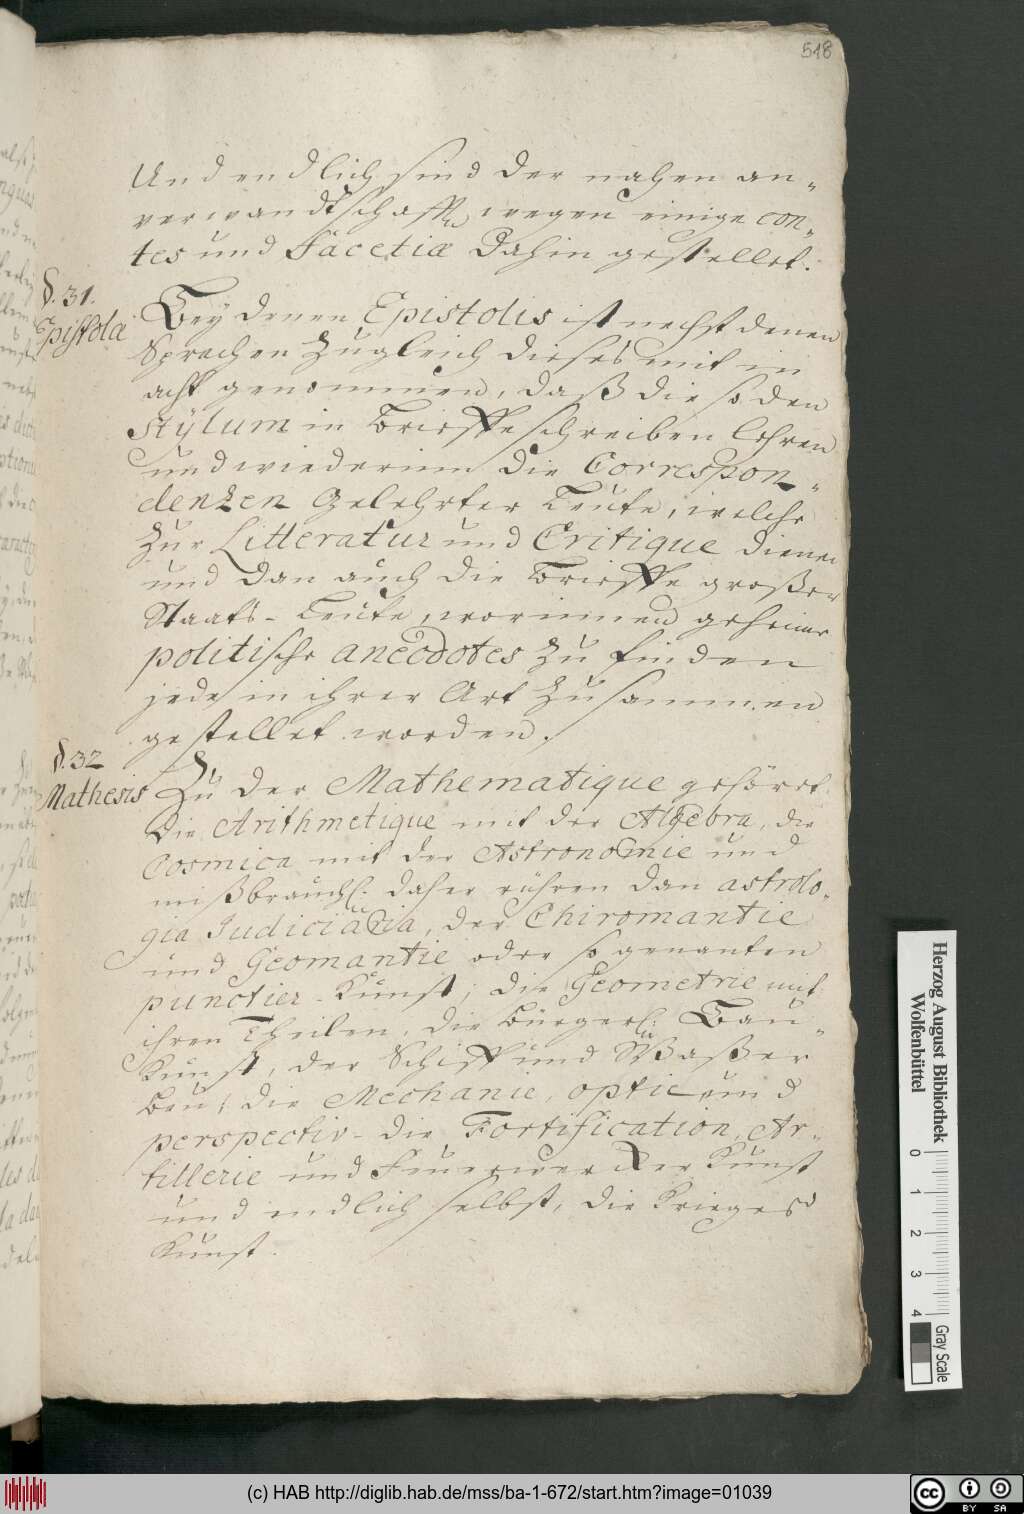 518
Und endlich sind der nahen an-
verwandtschafft wegen einige con-
tes und Facetiæ dahin gestellet.
§. 31.
Epistola
Bey denen Epistolis ist nechst denen
Sprachen zugleich dieses mit in
acht genommen, daß die so den
stylum in Brieffe schreiben lehren
und wiederum die Correspon-
denzen Gelehrter Leute, welche
zur Litteratur und Critique dienen
und dan auch die Brieffe großer
Staats-Leute, worinnen geheime
politische anecdotes zu finden
jede in ihrer Art zusammen
gestellet worden.
§. 32
Mathesis
Zu der Mathematique gehöret
die Arithmetique mit der Algebra, die
Cosmica mit der Astronomie und
mißbrauchl. daher rühren dan astrolo-
gia Judiciaria, der Chiromantie
und Geomantie oder so genanten
punctier-Kunst; die Geometrie mit
ihren Theilen, die Bürgerl: Bau-
Kunst, der Schiff und Waßer
Bau; die Mechanic, optic und
perspectiv- die Fortification, Ar-
tillerie und Feuerwercker Kunst
und endlich selbst, die Krieges
Kunst.
Herzog August Bibliothek
Wolfenbüttel
0 1 2 3 4
Gray Scale
(c) HAB http://diglib.hab.de/mss/ba-1-672/start.htm?image=01039
cc BY SA